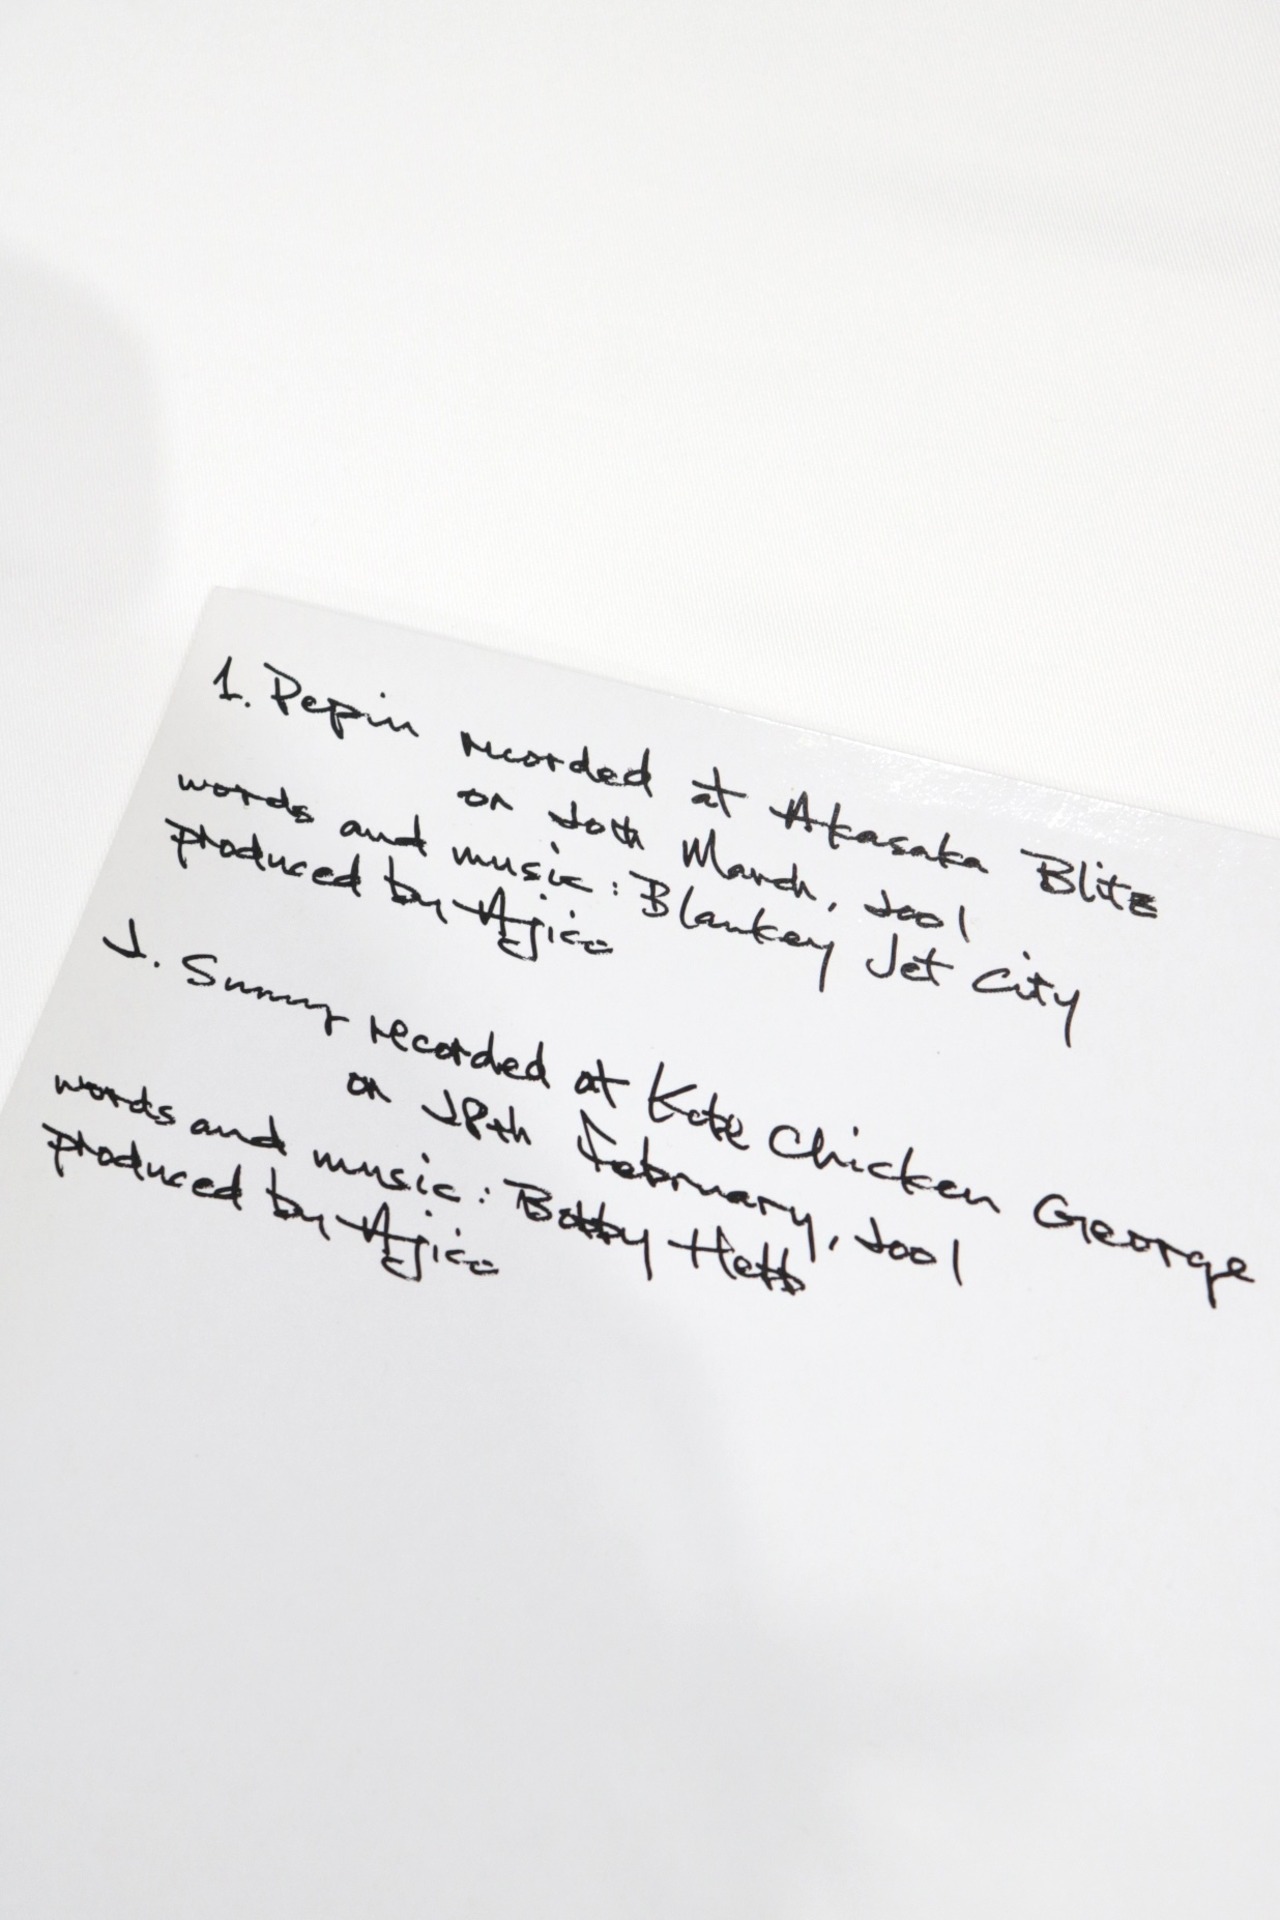 1. Pepin recorded at Akasaka Blitz
on 20th March, 2001
words and music : Blankey Jet City
produced by Ajico
2. Sunny recorded at Kobe Chicken George
on 28th February, 2001
words and music : Bobby Hebb
produced by Ajico